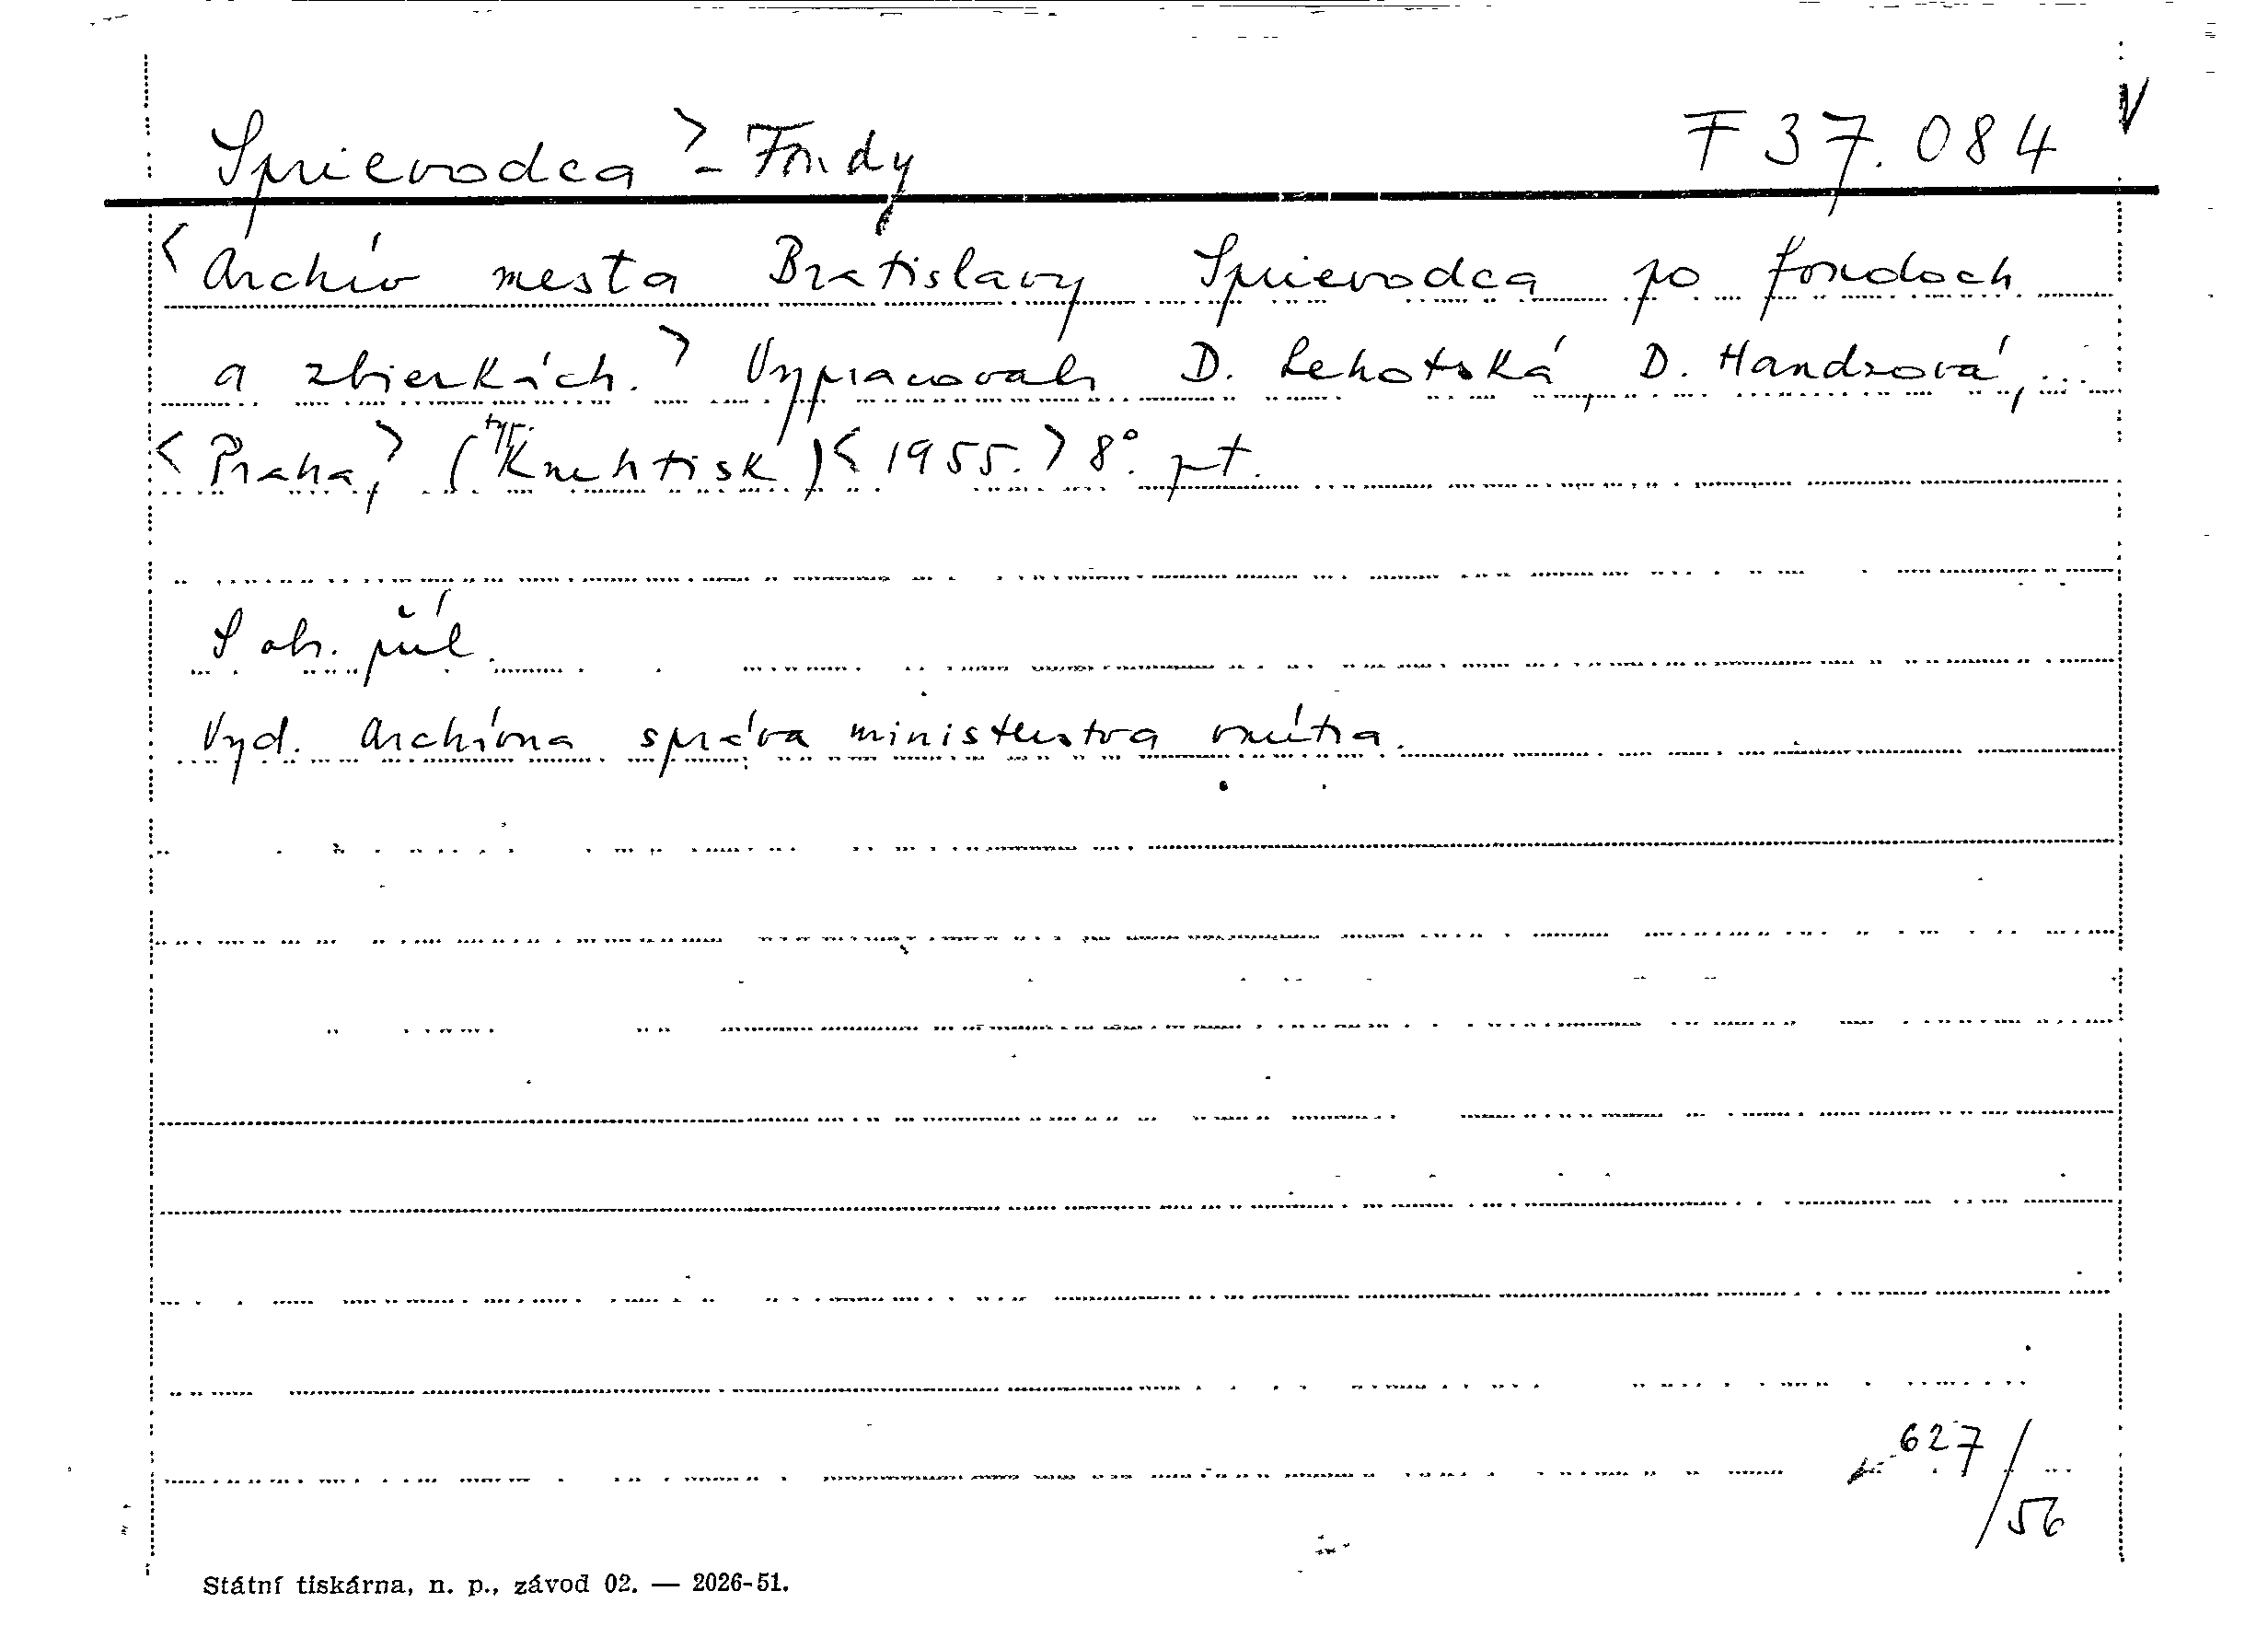 Sprievodca > - Fondy F 37.084 V
< Archív mesta Bratislavy Sprievodca po fondoch
a zbierkách. > Vypracovali D. Lehotská, D. Handzová, ...
< Praha, > (typ. Knihtisk) < 1955. > 8°. pt.
S obr. příl.
Vyd. Archívna správa ministerstva vnútra.
627/
56
Státní tiskárna, n. p., závod 02. — 2026-51.